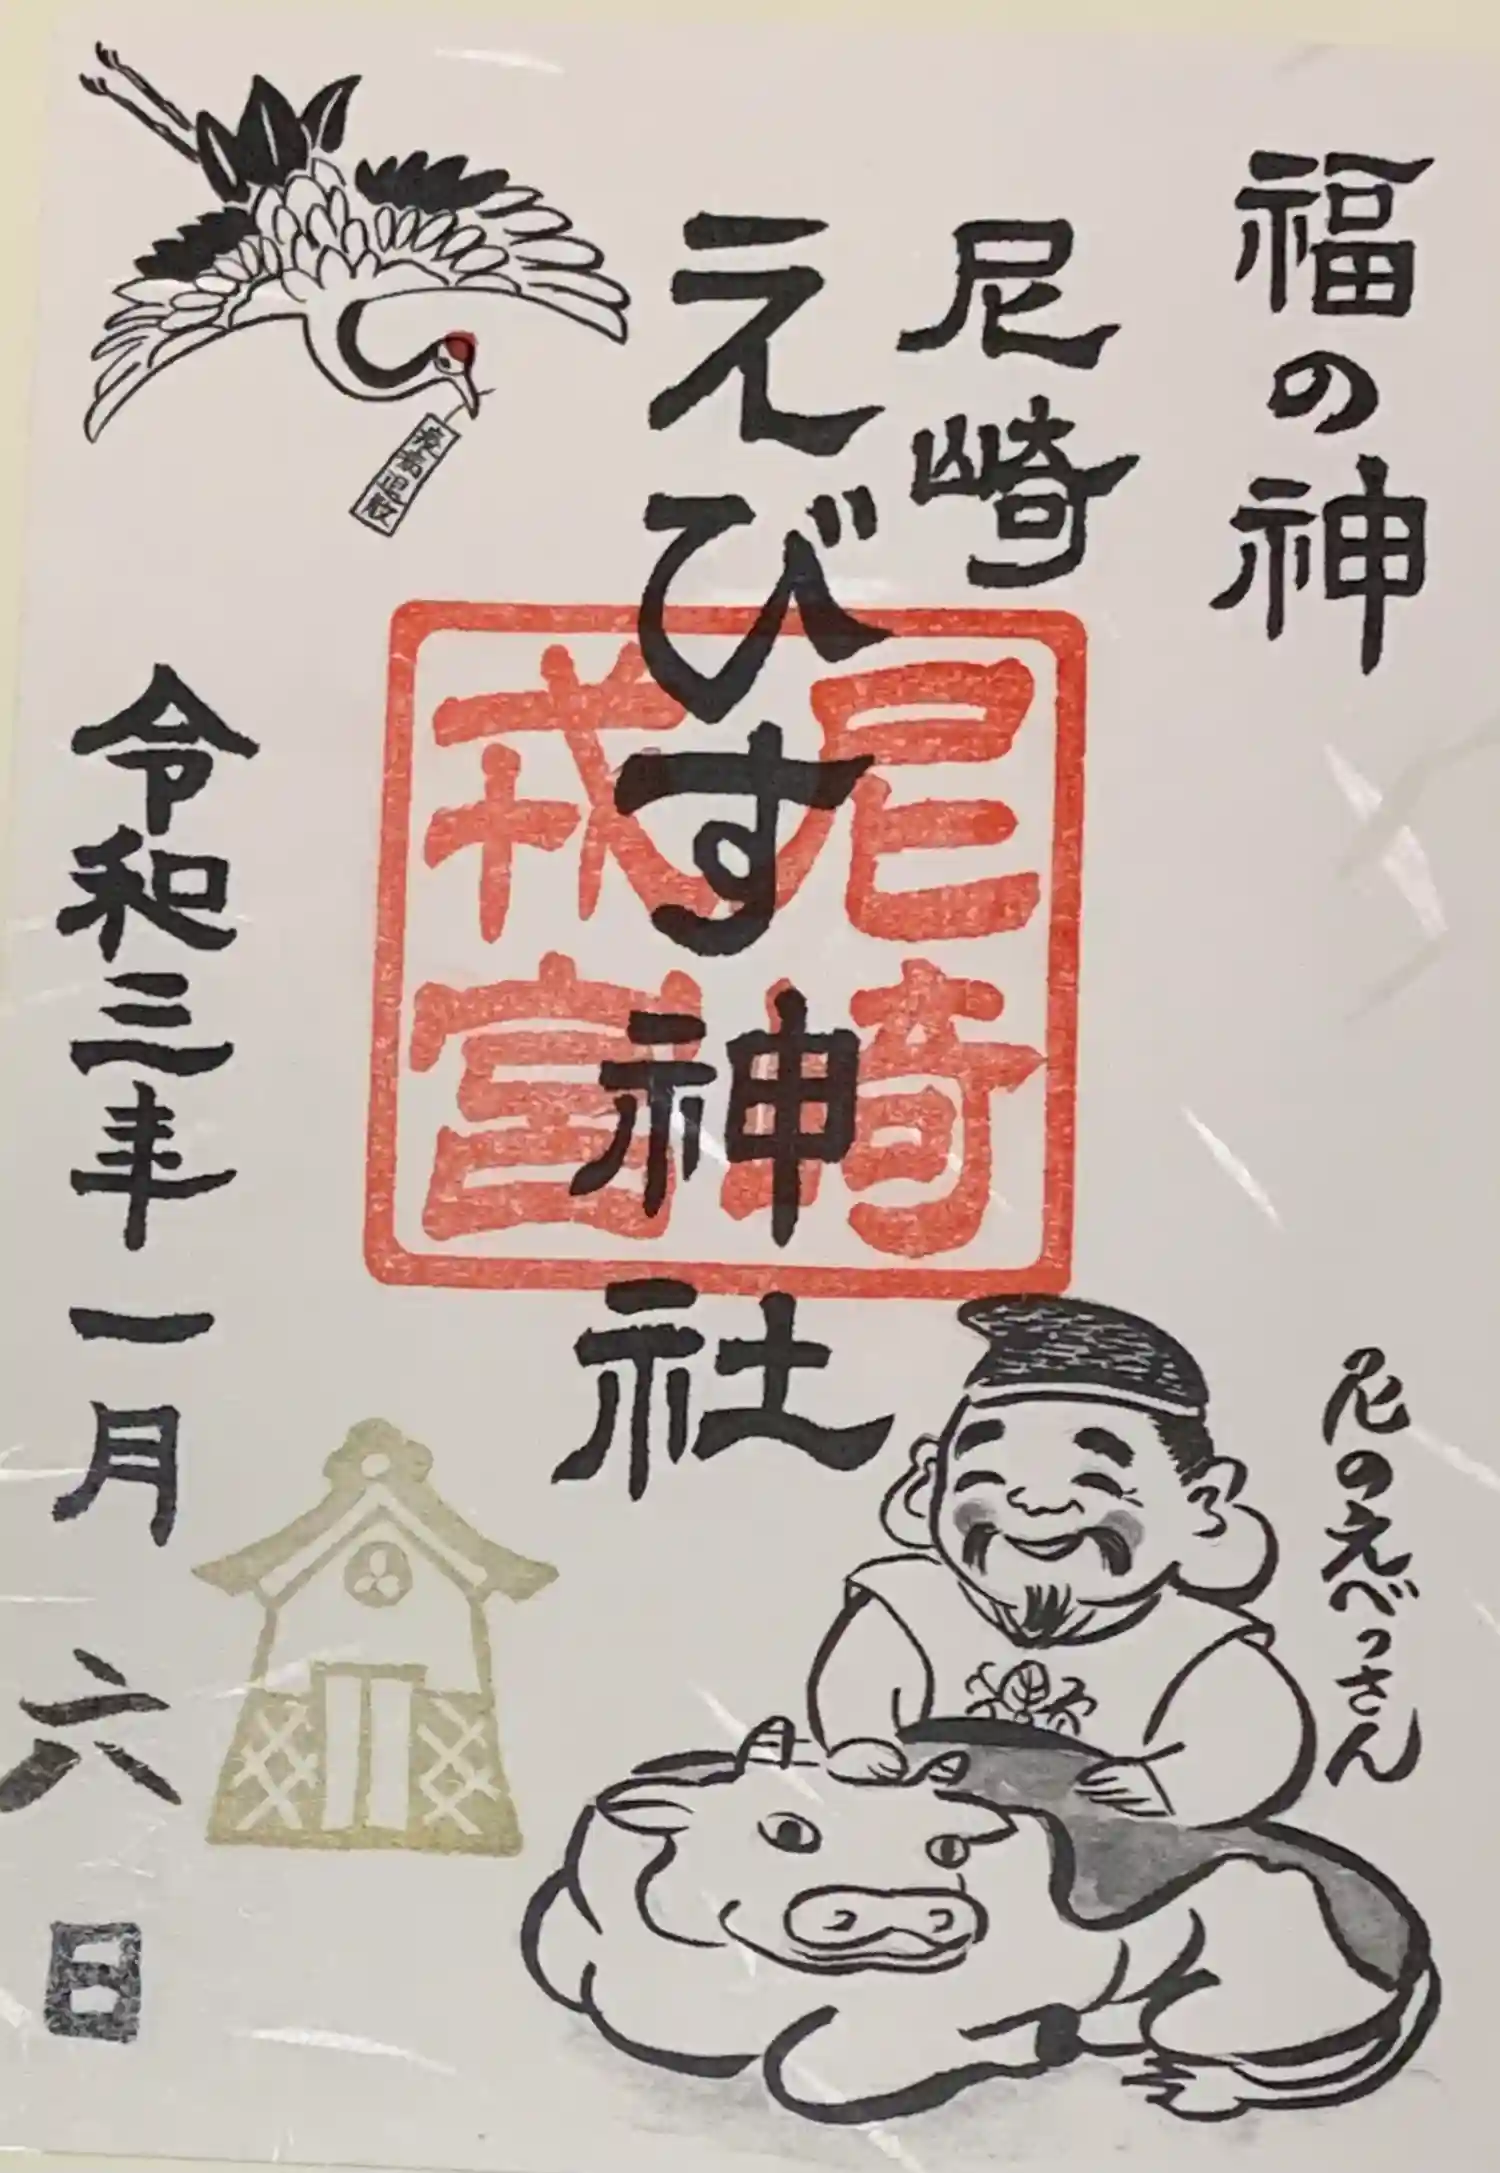 福の神
尼崎
えびす神社
尼崎
戎宮
疫病退散
令和三年一月六日
尼のえべっさん